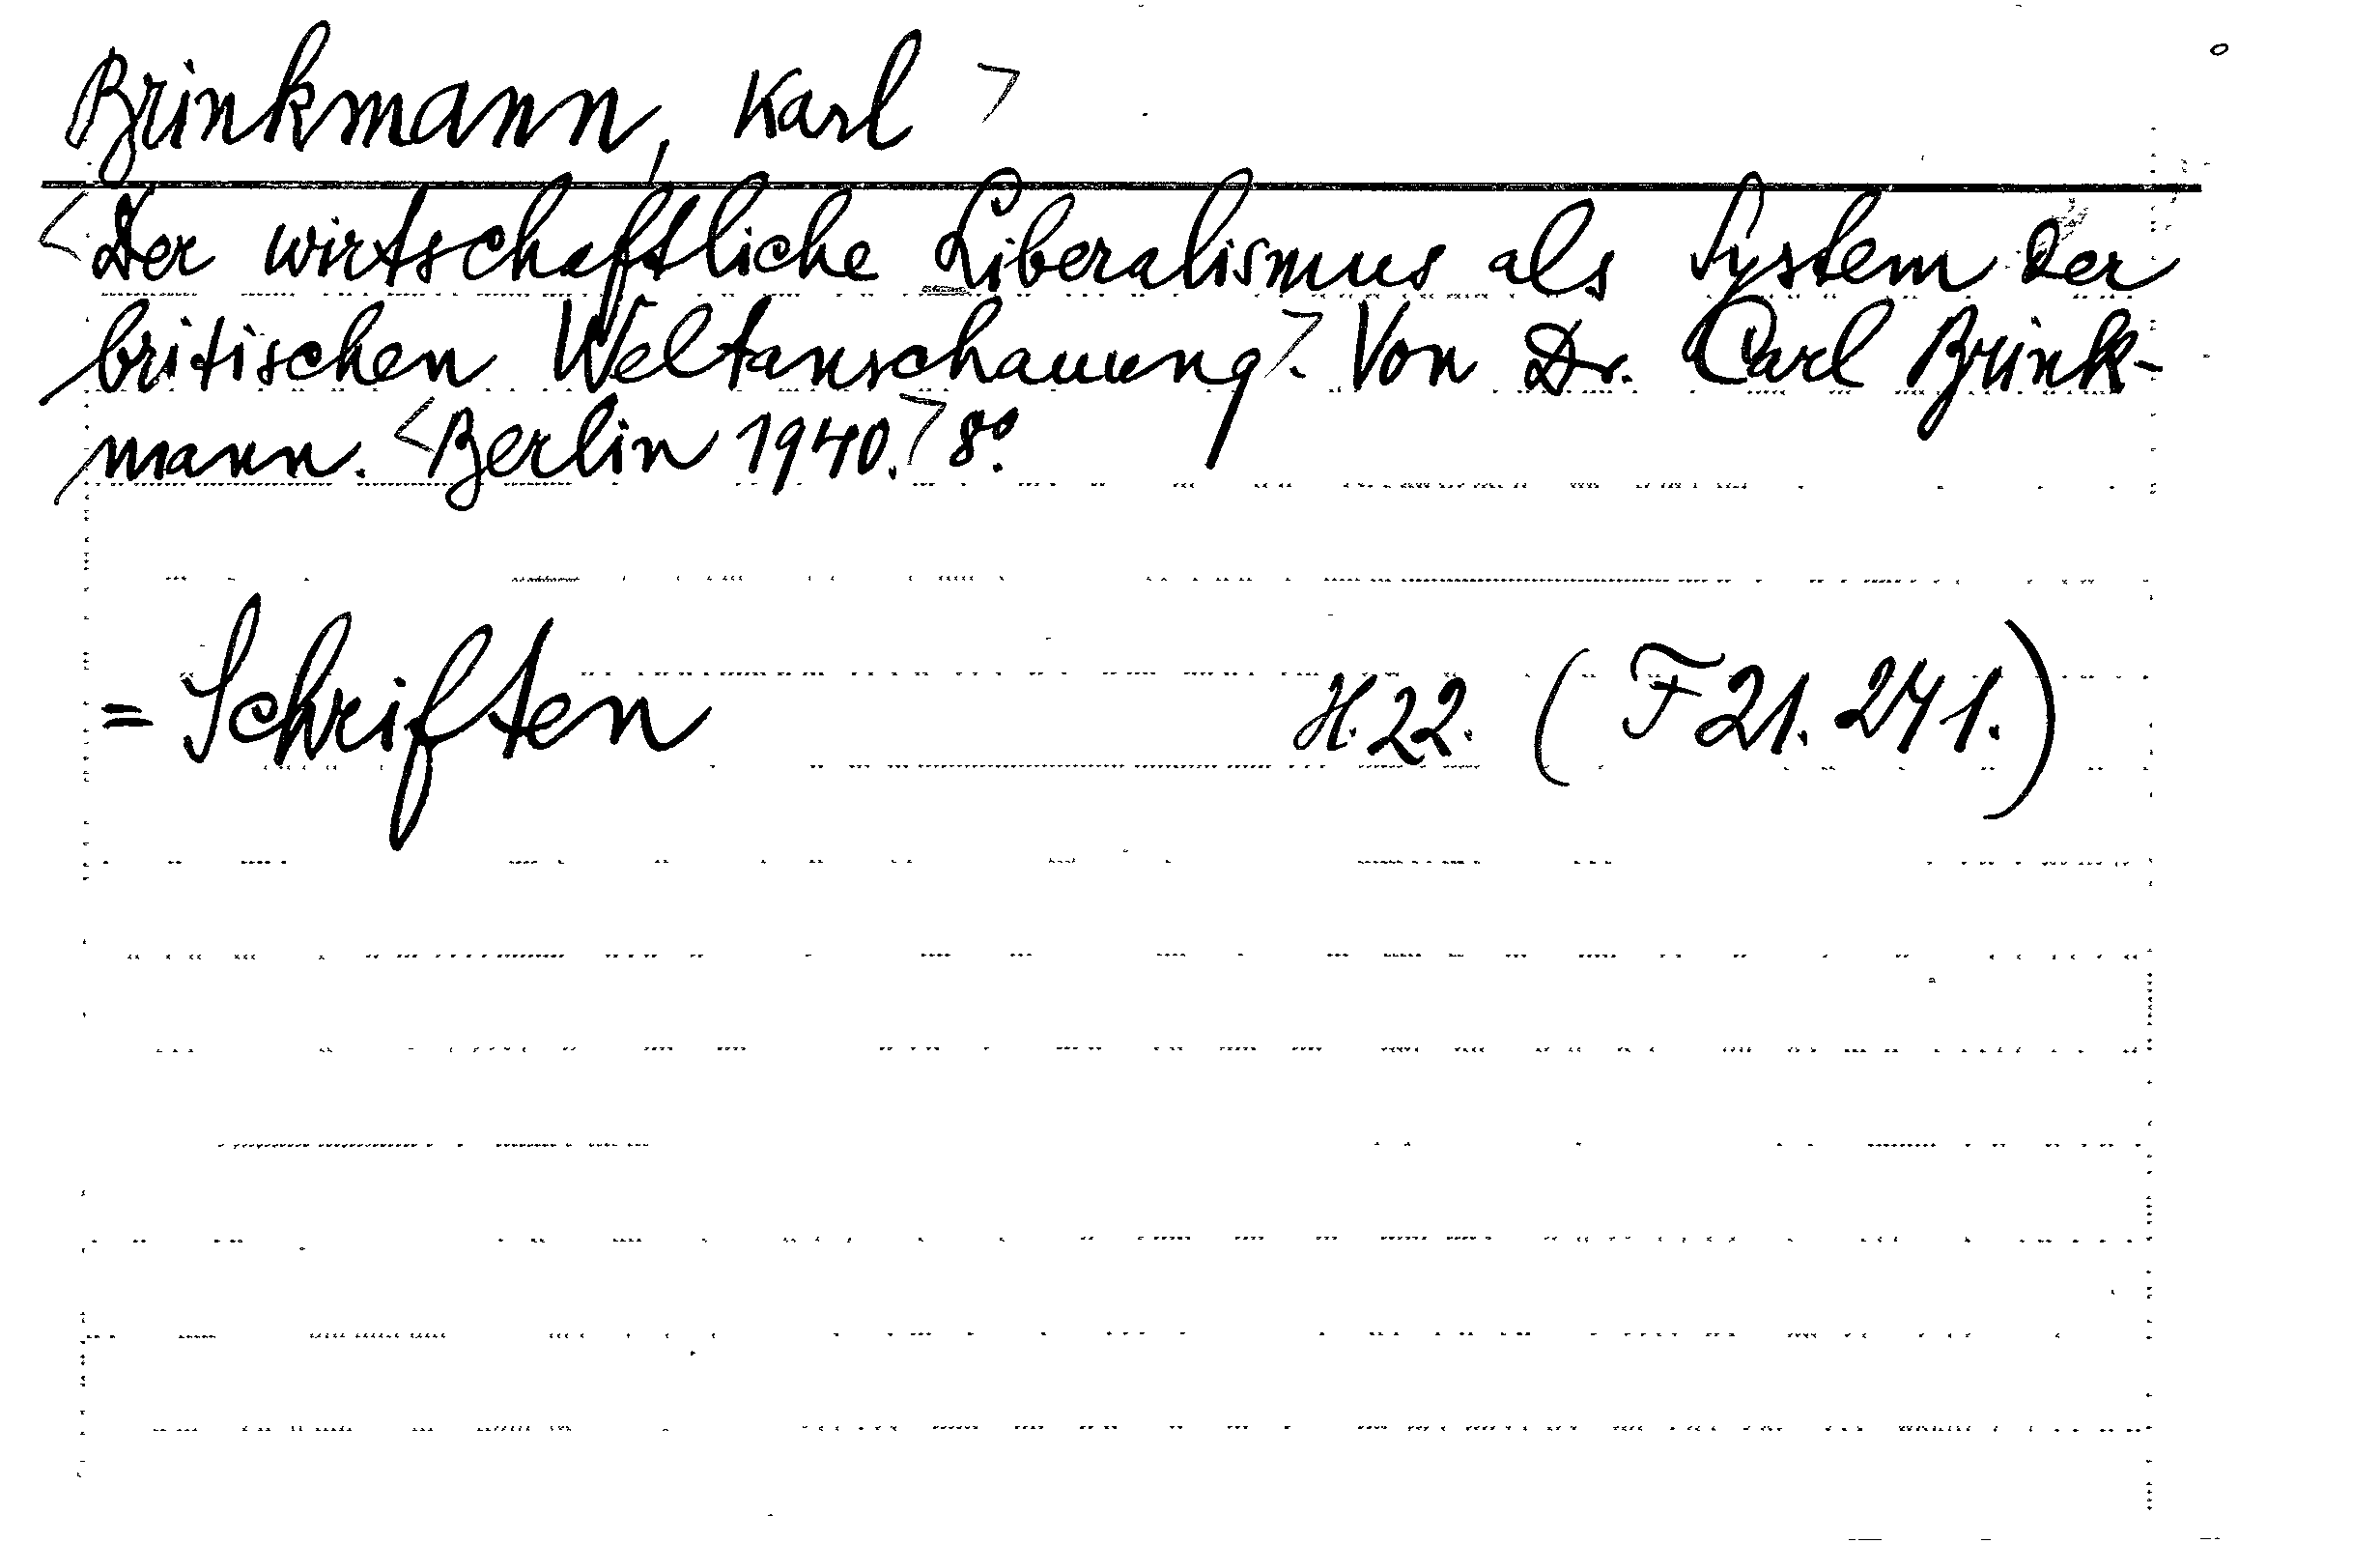 Brinkmann, Karl >
< Der wirtschaftliche Liberalismus als System der
britischen Weltanschauung>. Von Dr. Carl Brink-
mann. <Berlin 1940.> 8º.
= Schriften H. 22. (F 21. 241.)